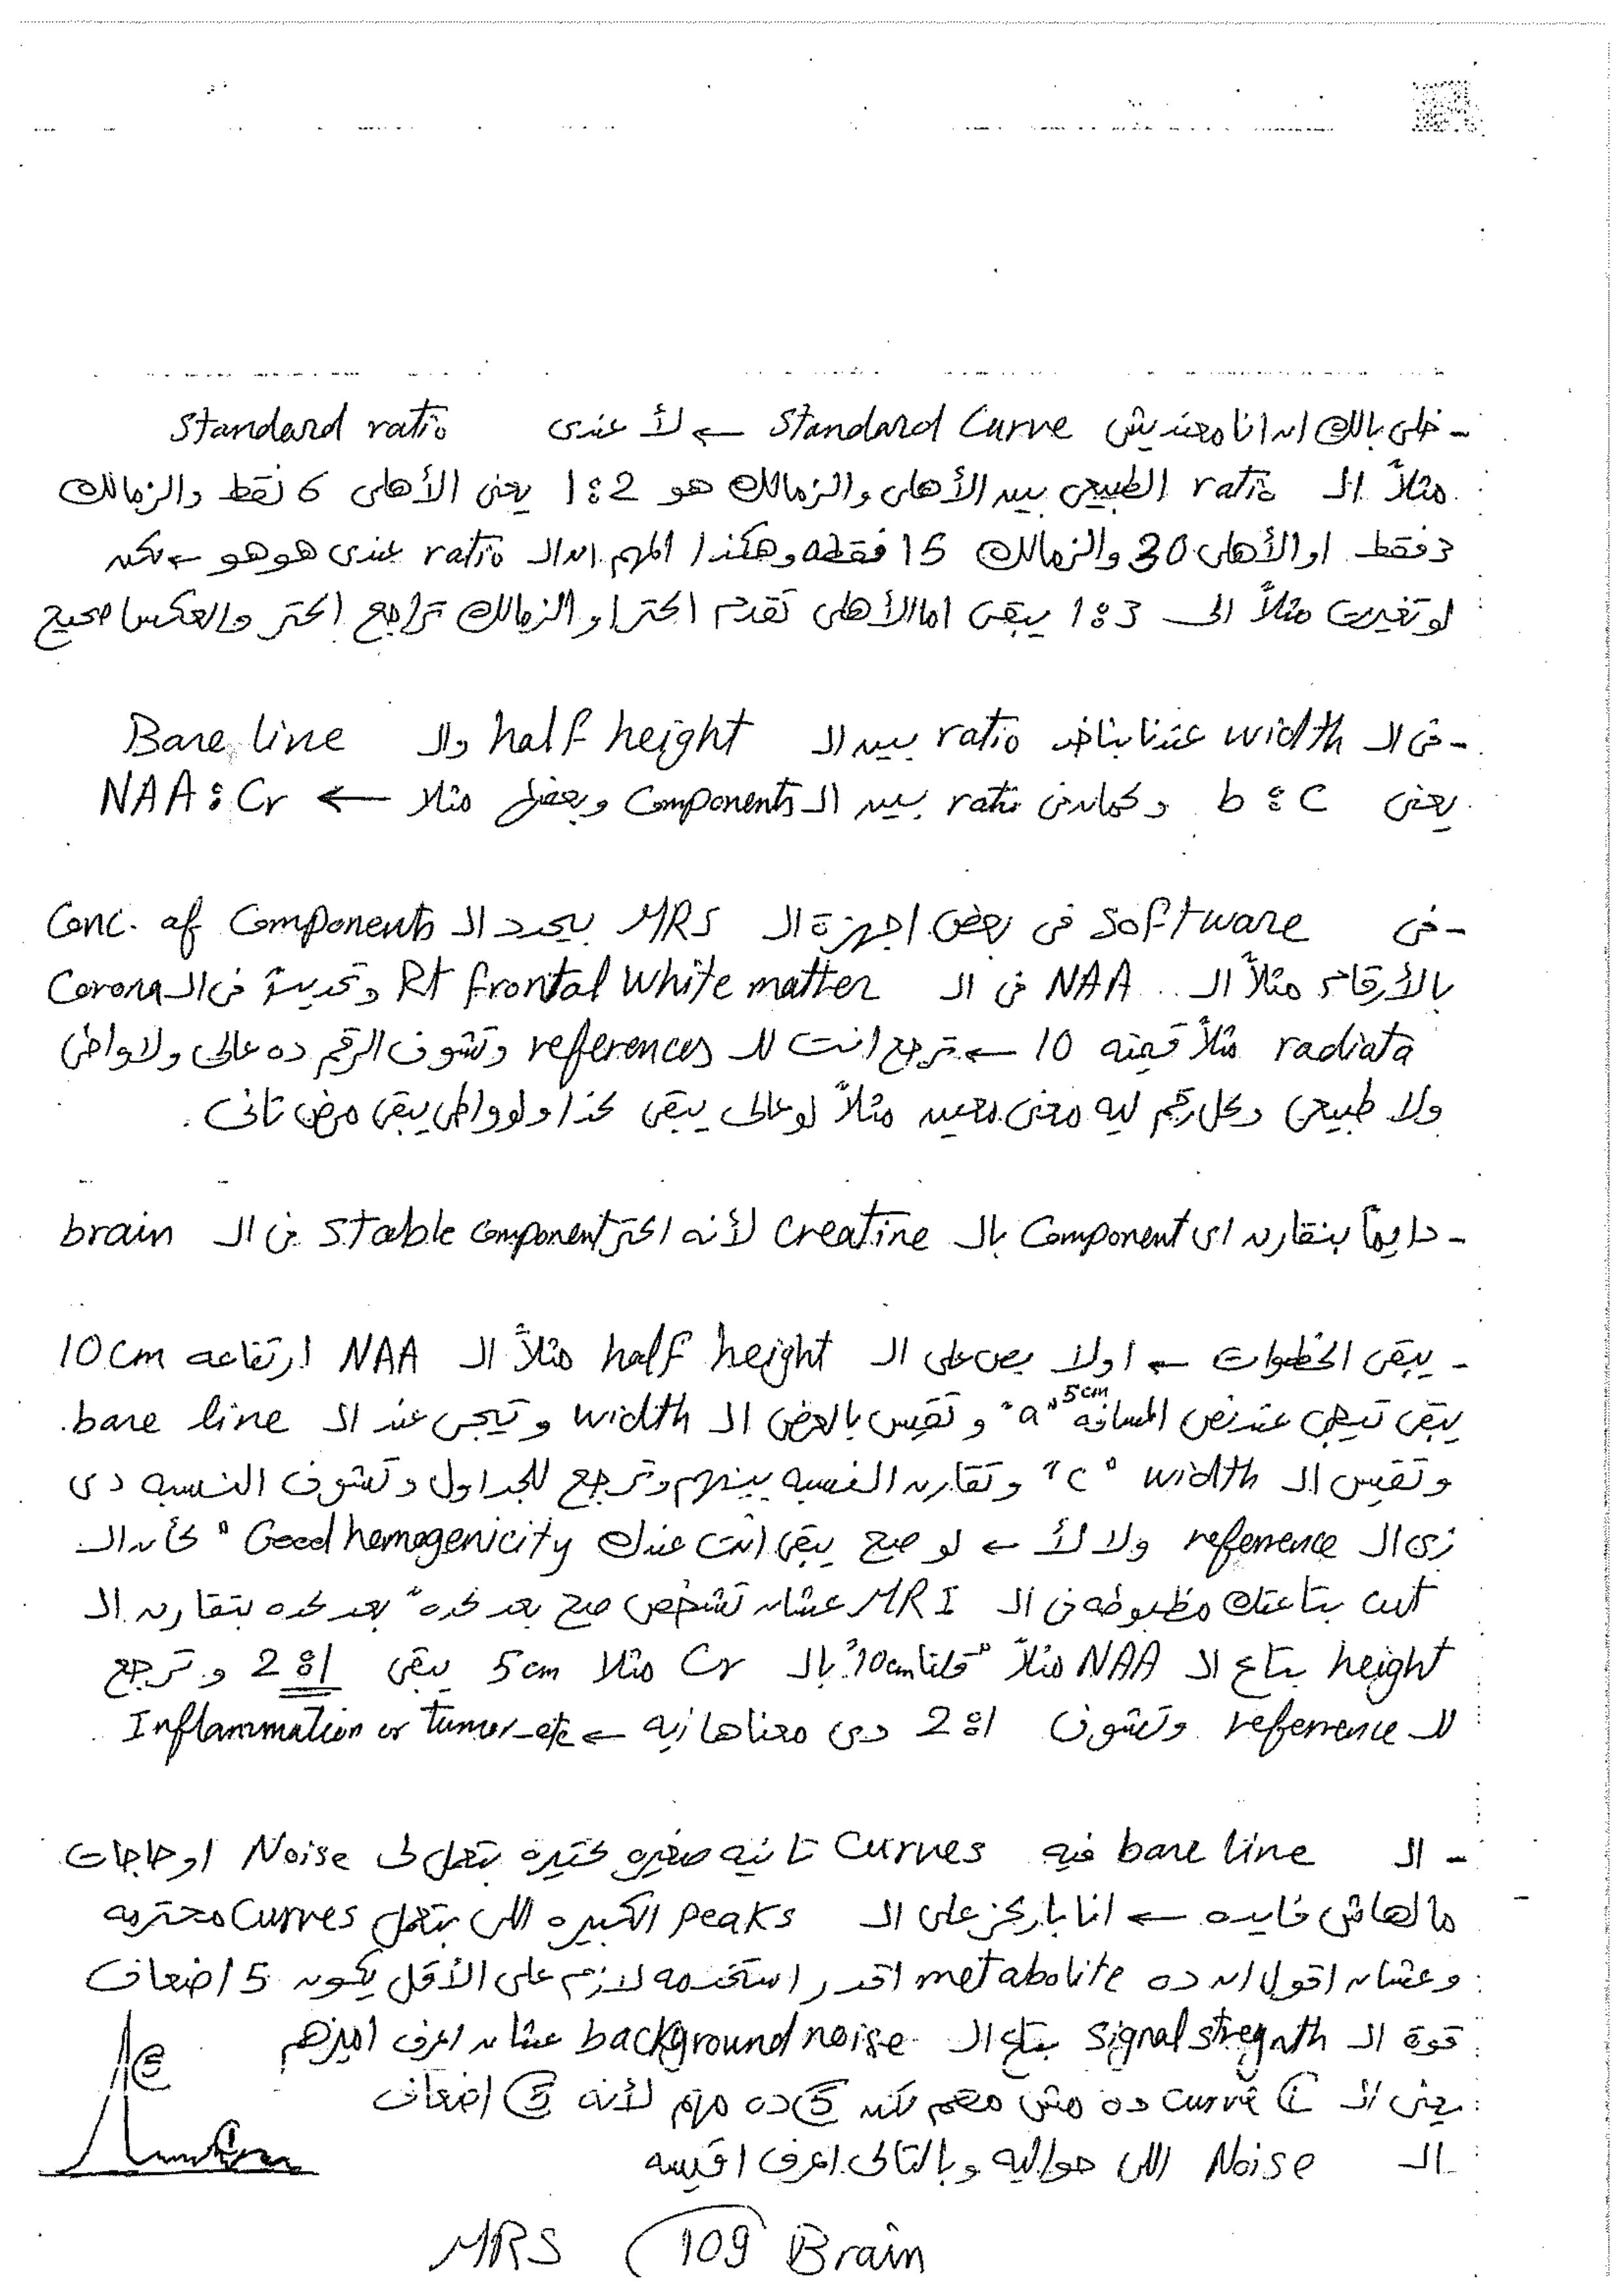 - خلى بالك ان انا معنديش Standard Curve ← لأ عندى Standard ratio
مثلاً الـ ratio الطبيعى بين الأهلى والزمالك هو 2:1 يعنى الأهلى 6 نقط والزمالك
3 نقط او الأهلى 30 والزمالك 15 نقطه وهكذا المهم ان الـ ratio عندى هو هو ← لكن
لو تغيرت مثلاً الى 3:1 يبقى اما الأهلى تقدم اكتر او الزمالك تراجع اكتر والعكس صحيح
- فى الـ width عندنا بناخد ratio بين الـ half height والـ Bare line
يعنى b : C وكمان فى ratio بين الـ Components وبعض مثلا ← NAA : Cr
- فى Software فى بعض اجهزة الـ MRS بيحدد الـ Conc. of Components
بالأرقام مثلاً الـ NAA فى الـ Rt frontal White matter وتحديداً فى الـ Corona
radiata مثلاً قيمته 10 ← ترجع انت للـ refferences وتشوف الرقم ده عالى ولا واطى
ولا طبيعى وكل رقم ليه معنى معين مثلاً لو عالى يبقى كذا ولو واطى يبقى مرض تانى .
- دايماً بنقارن اى Component بالـ Creatine لأنه اكتر Stable component فى الـ brain
- يبقى الخطوات ← اولا بص على الـ half height مثلاً الـ NAA ارتفاعه 10 cm
يبقى تيجى عند نص المسافه 5cm "a" و تقيس بالعرض الـ width و تيجى عند الـ bare line
وتقيس الـ width "C" وتقارن النسبه بينهم وترجع للجداول وتشوف النسبه دى
زى الـ referrence ولا لأ ← لو صح يبقى انت عندك Good homogenicity " كأن الـ
cut بتاعتك مظبوطه فى الـ MRI عشان تشخص صح بعد كده " بعد كده بتقارن الـ
height بتاع الـ NAA مثلاً "قلنا 10cm" بالـ Cr مثلا 5 cm يبقى 2:1 و ترجع
للـ referrence وتشوف 2:1 دى معناها ايه ← Inflammation or tumor - etc
- الـ bare line فيه Curves تانيه صغيره كتيره بتعمل لى Noise او حاجات
مالهاش فايده ← انا باركز على الـ peaks الكبيره اللى بتعمل Curves محترمه
وعشان اقول ان ده metabolite اقدر استخدمه لازم على الأقل يكون 5 اضعاف
قوة الـ signal stregnth بتاع الـ background noise عشان اعرف اميزهم
يعنى الـ Curve ① ده مش مهم لكن ⑤ ده مهم لأنه ⑤ اضعاف
الـ Noise اللى حواليه وبالتالى اعرف اقيسه
⑤
①
MRS 109 Brain